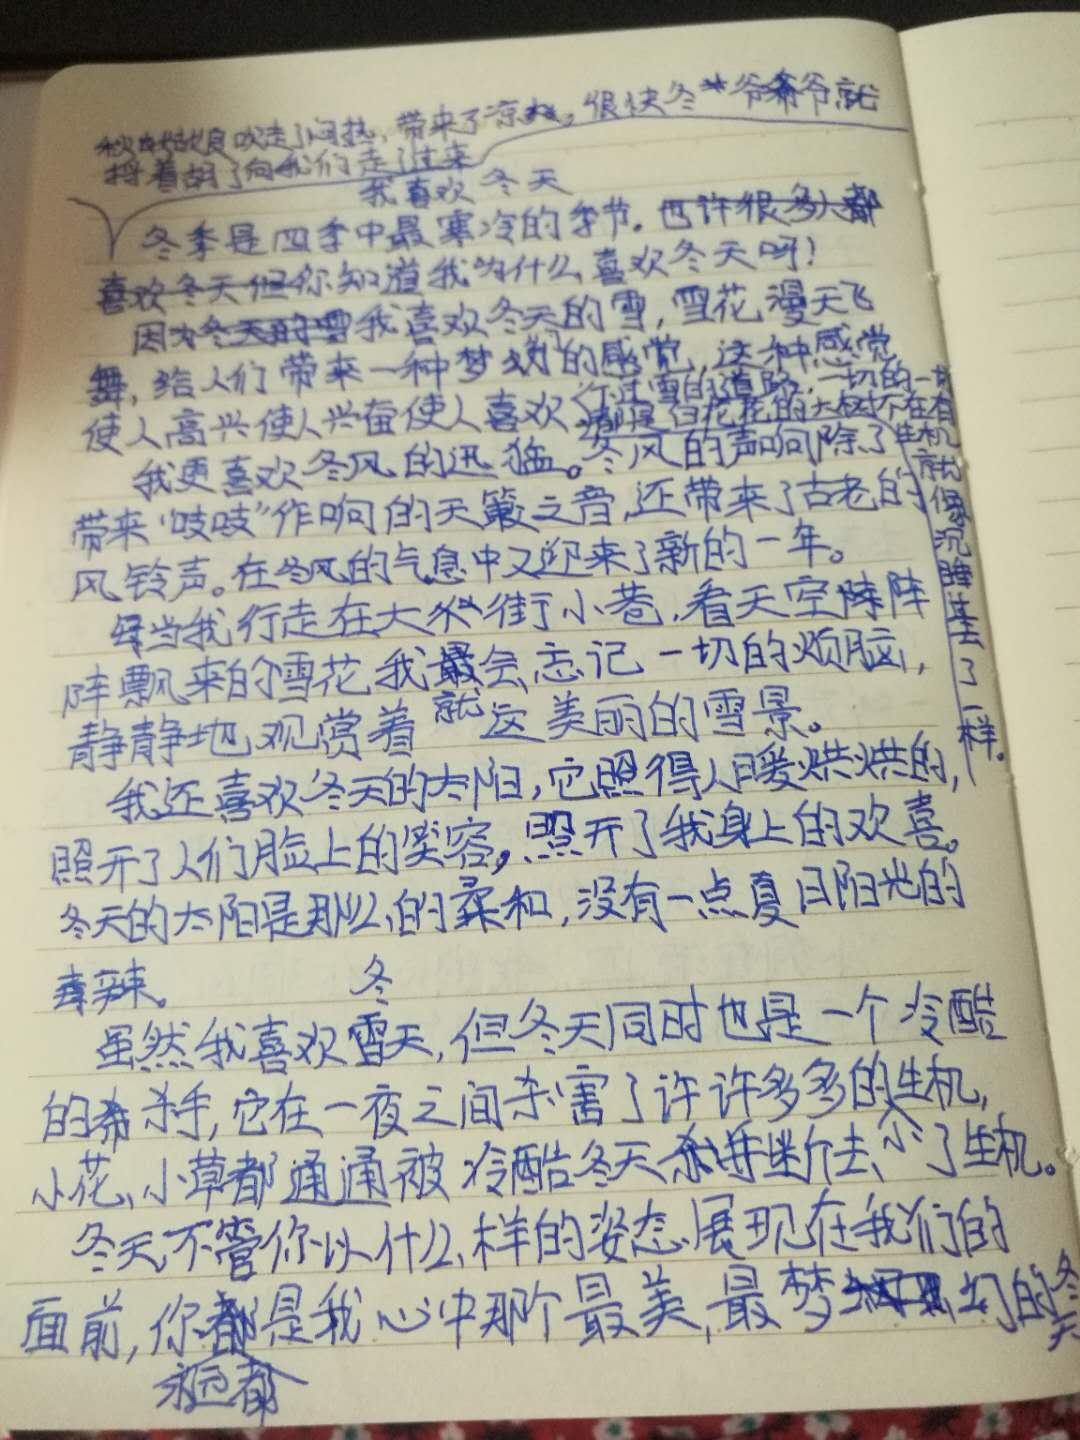 秋姑娘吹走了闷热,带来了凉,很快冬爷爷就
捋着胡子向我们走了过来
我喜欢冬天
冬季是四季中最寒冷的季节。也许很多人都
喜欢冬天但你知道我为什么喜欢冬天吗!
因为冬天的雪我喜欢冬天的雪,雪花漫天飞
舞,给人们带来一种梦幻的感觉,这种感觉
使人高兴使人兴奋使人喜欢
下过雪的道路,一切的一切
都是白花花的大树不在有
生机
就像沉睡去了一样。
我更喜欢冬风的迅猛。冬风的声响除了
带来“吱吱”作响的天籁之音,还带来了古老的
风铃声。在冬风的气息中又迎来了新的一年。
每当我行走在大街小巷,看天空阵阵
阵飘来的雪花,我最会忘记一切的烦脑,
就
静静地观赏着这美丽的雪景。
我还喜欢冬天的太阳,它照得人暖烘烘的,
照开了人们脸上的笑容,照开了我身上的欢喜。
冬天的太阳是那么的柔和,没有一点夏日阳光的
毒辣。
冬
虽然我喜欢雪天,但冬天同时也是一个冷酷
的杀手,它在一夜之间杀害了许许多多的生机,
小花、小草都通通被冷酷冬天杀手断去小了生机。
冬天,不管你以什么样的姿态展现在我们的
面前,你都是我心中那个最美,最梦幻的冬天
永远都